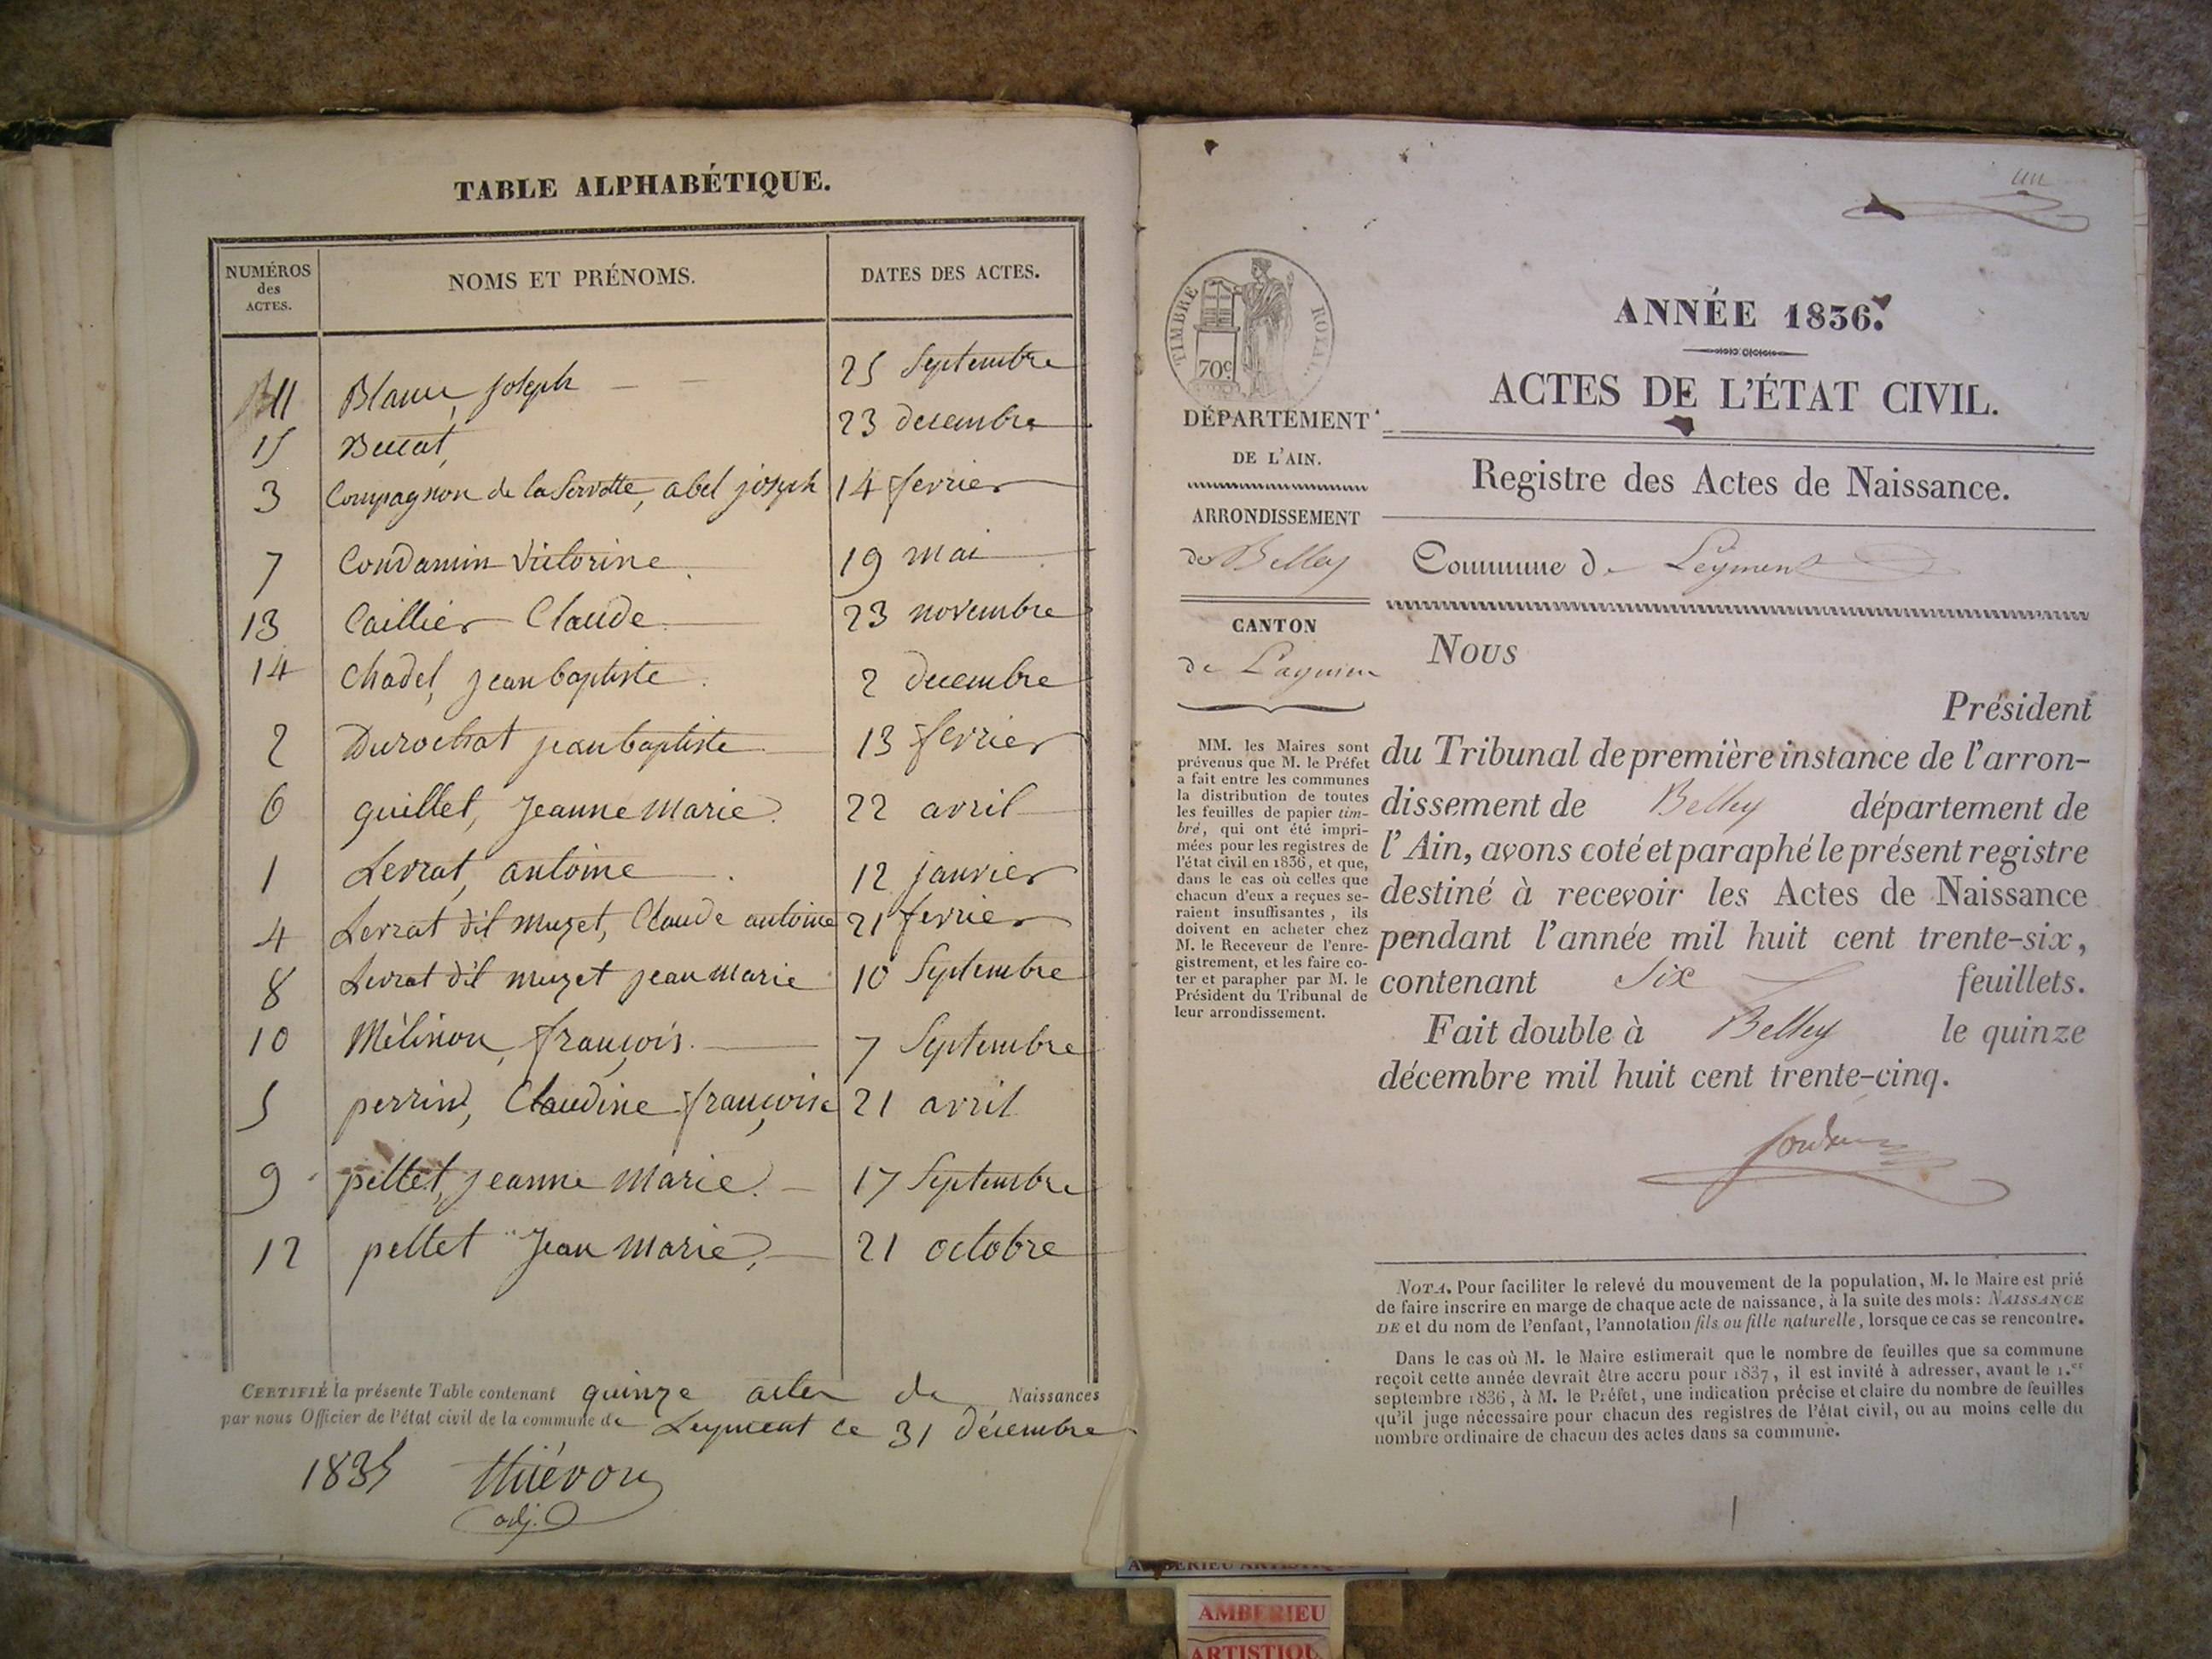 TABLE ALPHABÉTIQUE.
NUMÉROS
des
ACTES.
NOMS ET PRÉNOMS.
DATES DES ACTES.
11 Joseph 25 Septembre
15 23 decembre
3 Compagnon de la Servette, abel joseph 14 fevrier
7 Condamin Victorine 19 mai
13 Caillier Claude 23 novembre
14 Chadel, jean baptiste 2 decembre
2 Durochat jean baptiste 13 fevrier
6 guillet, Jeanne Marie 22 avril
1 Levrat, antoine 12 janvier
4 Levrat dit muzet, Claude antoine 21 fevrier
8 Levrat dit muzet jean Marie 10 Septembre
10 Mélinon, françois 7 Septembre
5 perrin, Claudine françoise 21 avril
9 pellet, jeanne Marie 17 Septembre
12 pellet Jean Marie 21 octobre
CERTIFIÉ la présente Table contenant quinze actes de Naissances
par nous Officier de l'état civil de la commune de Leyment ce 31 décembre
1835 thiévon
adj.
un
TIMBRE ROYAL
70c
ANNÉE 1836.
ACTES DE L'ÉTAT CIVIL.
Registre des Actes de Naissance.
DÉPARTEMENT
DE L'AIN.
ARRONDISSEMENT
de Belley
Commune de Leyment
CANTON
de Lagnieu
MM. les Maires sont
prévenus que M. le Préfet
a fait entre les communes
la distribution de toutes
les feuilles de papier tim-
bré, qui ont été impri-
mées pour les registres de
l'état civil en 1836, et que,
dans le cas où celles que
chacun d'eux a reçues se-
raient insuffisantes, ils
doivent en acheter chez
M. le Receveur de l'enre-
gistrement, et les faire co-
ter et parapher par M. le
Président du Tribunal de
leur arrondissement.
Nous
Président
du Tribunal de première instance de l'arron-
dissement de Belley département de
l'Ain, avons coté et paraphé le présent registre
destiné à recevoir les Actes de Naissance
pendant l'année mil huit cent trente-six,
contenant Six feuillets.
Fait double à Belley le quinze
décembre mil huit cent trente-cinq.
NOTA. Pour faciliter le relevé du mouvement de la population, M. le Maire est prié
de faire inscrire en marge de chaque acte de naissance, à la suite des mots: NAISSANCE
DE et du nom de l'enfant, l'annotation fils ou fille naturelle, lorsque ce cas se rencontre.
Dans le cas où M. le Maire estimerait que le nombre de feuilles que sa commune
reçoit cette année devrait être accru pour 1837, il est invité à adresser, avant le 1.er
septembre 1836, à M. le Préfet, une indication précise et claire du nombre de feuilles
qu'il juge nécessaire pour chacun des registres de l'état civil, ou au moins celle du
nombre ordinaire de chacun des actes dans sa commune.
AMBERIEU ARTISTIQUE
AMBERIEU
ARTISTIQU